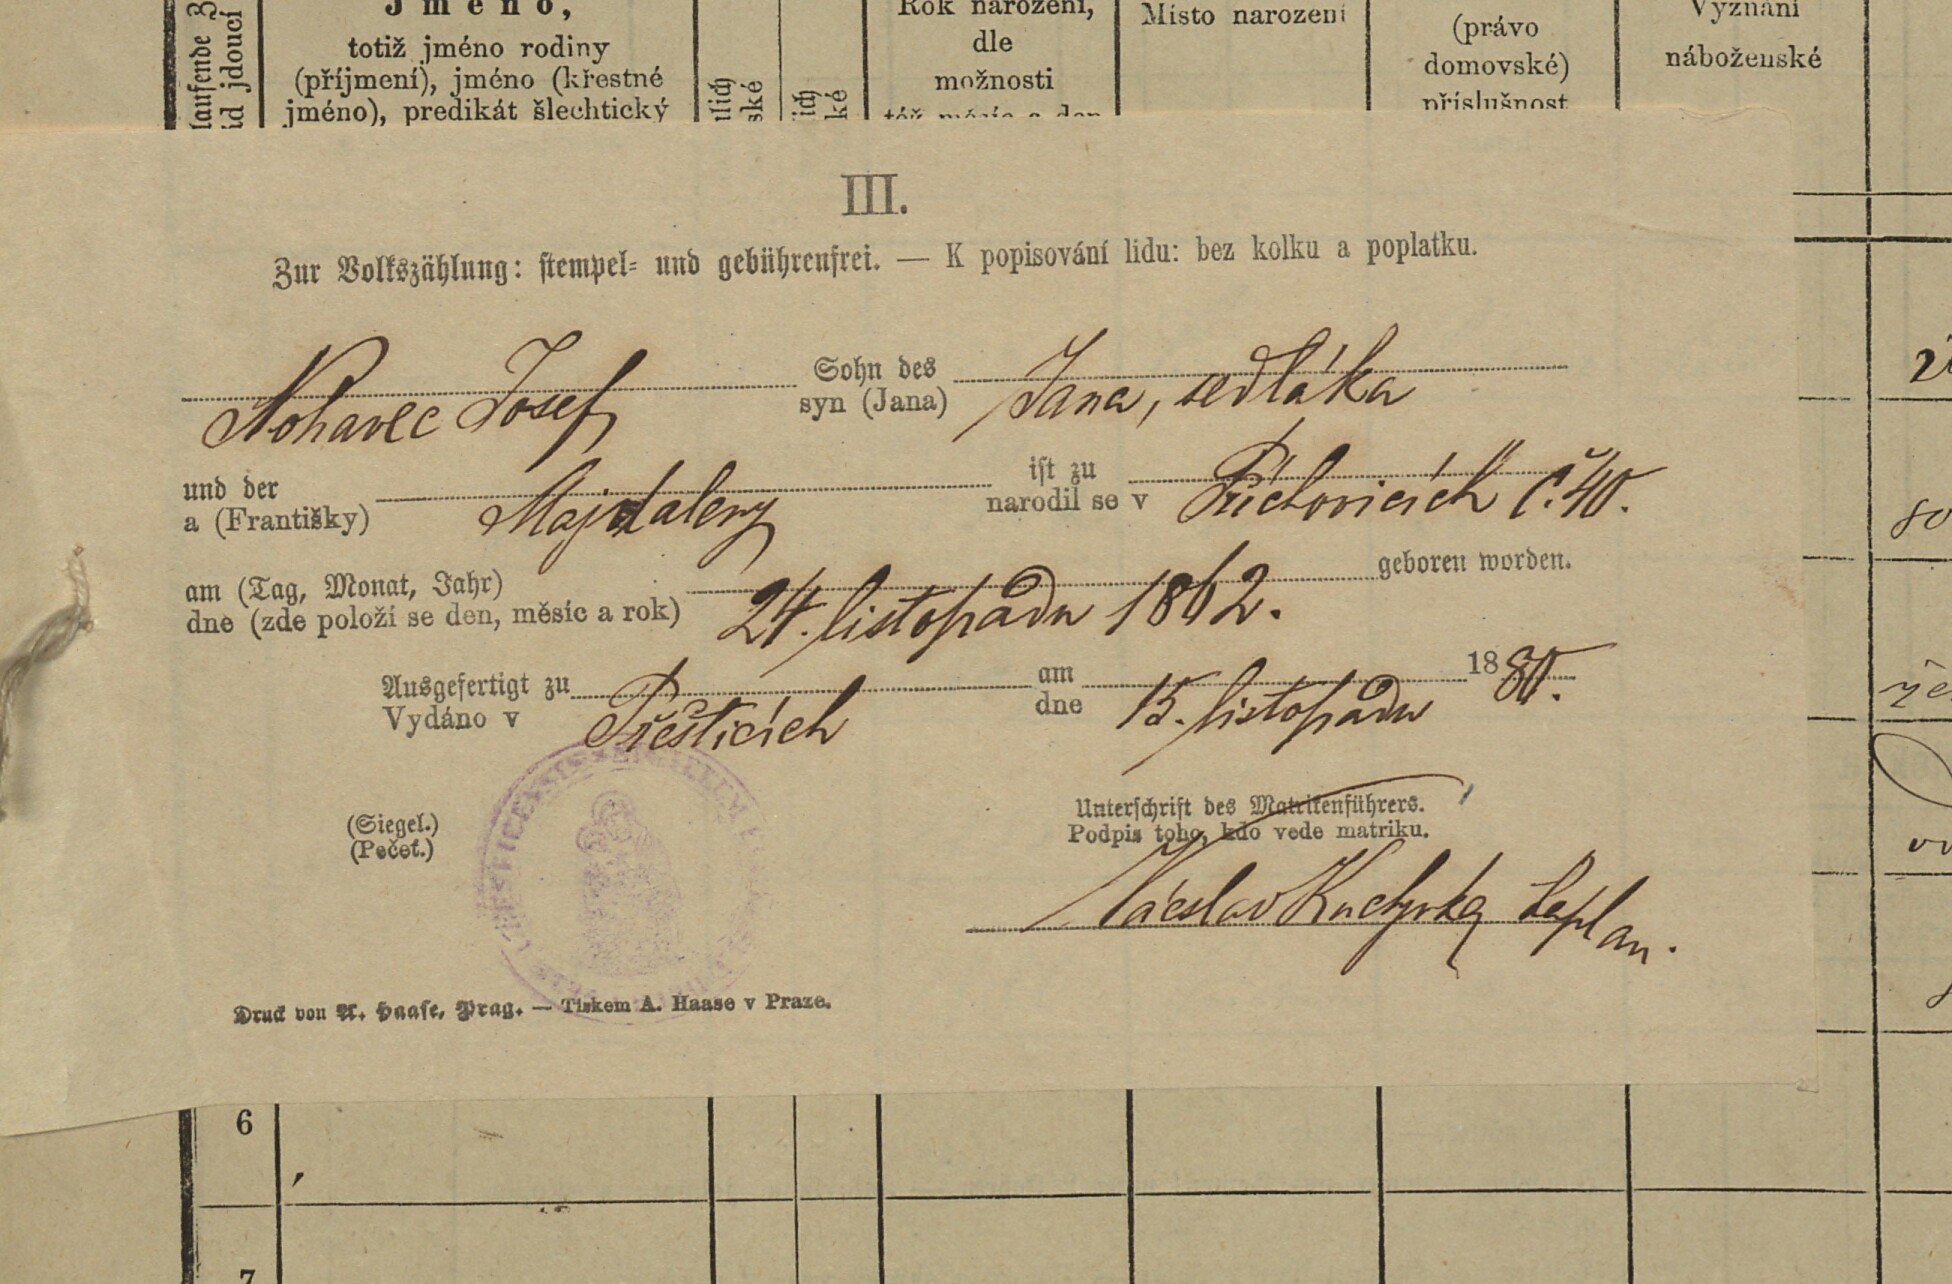 Jméno,
totiž jméno rodiny
(příjmení), jméno (křestné
jméno), predikát šlechtický
laufende Z
id jdoucí
lich
ské
ich
ké
Rok narození,
dle
možnosti
též měsíc a den
Místo narození
(právo
domovské)
příslušnost
Vyznání
náboženské
III.
Zur Volkszählung: stempel- und gebührenfrei. — K popisování lidu: bez kolku a poplatku.
Nohavec Josef Sohn des Jana, sedláka
syn (Jana)
und der Majdaleny ist zu Příchovicích č. 40.
a (Františky) narodil se v
am (Tag, Monat, Jahr) 24. listopadu 1862. geboren worden.
dne (zde položí se den, měsíc a rok)
Ausgefertigt zu Přešticích am 15. listopadu 1880.
Vydáno v dne
(Siegel.)
(Pečeť.)
Unterschrift des Matrikenführers.
Podpis toho, kdo vede matriku.
Václav Kuchynka kaplan.
Druck von A. Haase, Prag. — Tiskem A. Haase v Praze.
6
7